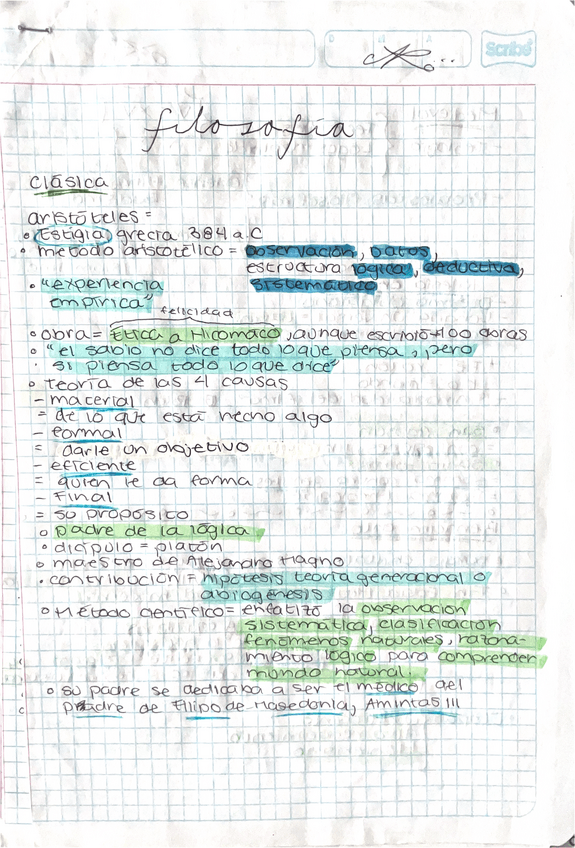 Scribe
filosofía
clásica
aristóteles =
• Estigia, grecia 384 a.C
• metodo aristotélico = observación, datos,
estructura lógica, deductiva,
sistemático
• "experiencia
empírica"
felicidad
• obra = Etica a Nicomaco, aunque escribió +100 obras
• "el sabio no dice todo lo que piensa, pero
si piensa todo lo que dice"
• teoría de las 4 causas
- material
= de lo que está hecho algo
- formal
= darle un objetivo
- eficiente
= quien le da forma
- Final
= su propósito
• padre de la lógica
• dicípulo = platón
• maestro de Alejandro Magno
• contribución = hipótesis teoría generacional o
abiogénesis
• Método científico = enfatizó la observación
sistemática, clasificación
fenómenos naturales, razona-
miento lógico para comprender
mundo natural.
• su padre se dedicaba a ser el médico del
padre de Filipo de Masedonia, Amintas III